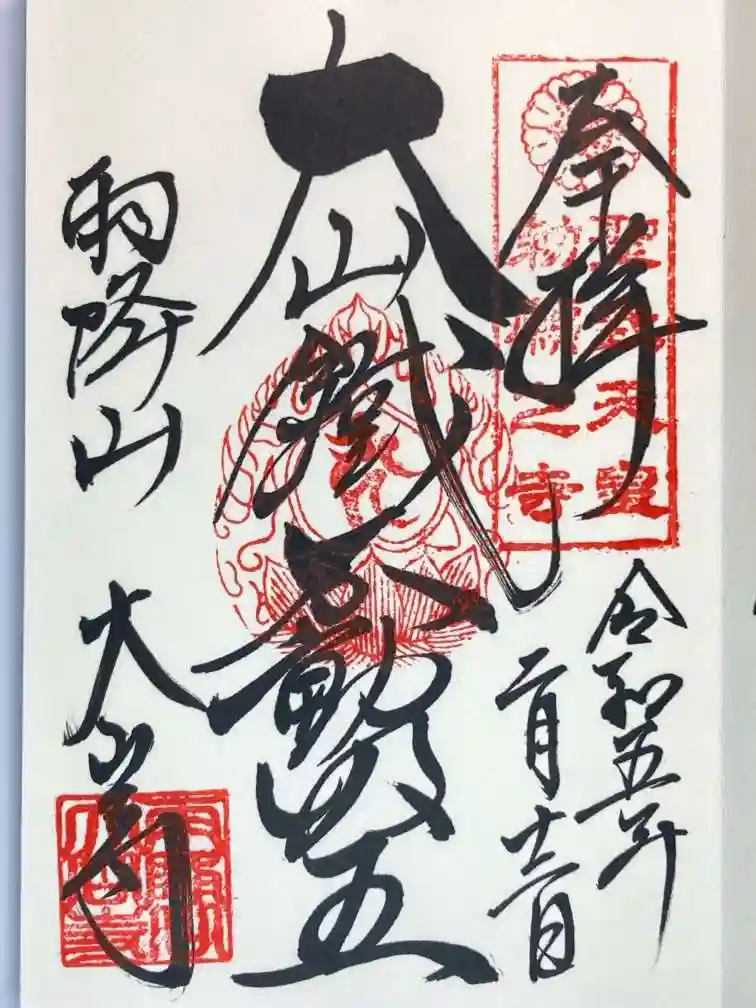 奉拝
聖武天皇
勅願之寺
令和五年
二月十二日
大山鐵不動明王
雨降山
大山寺